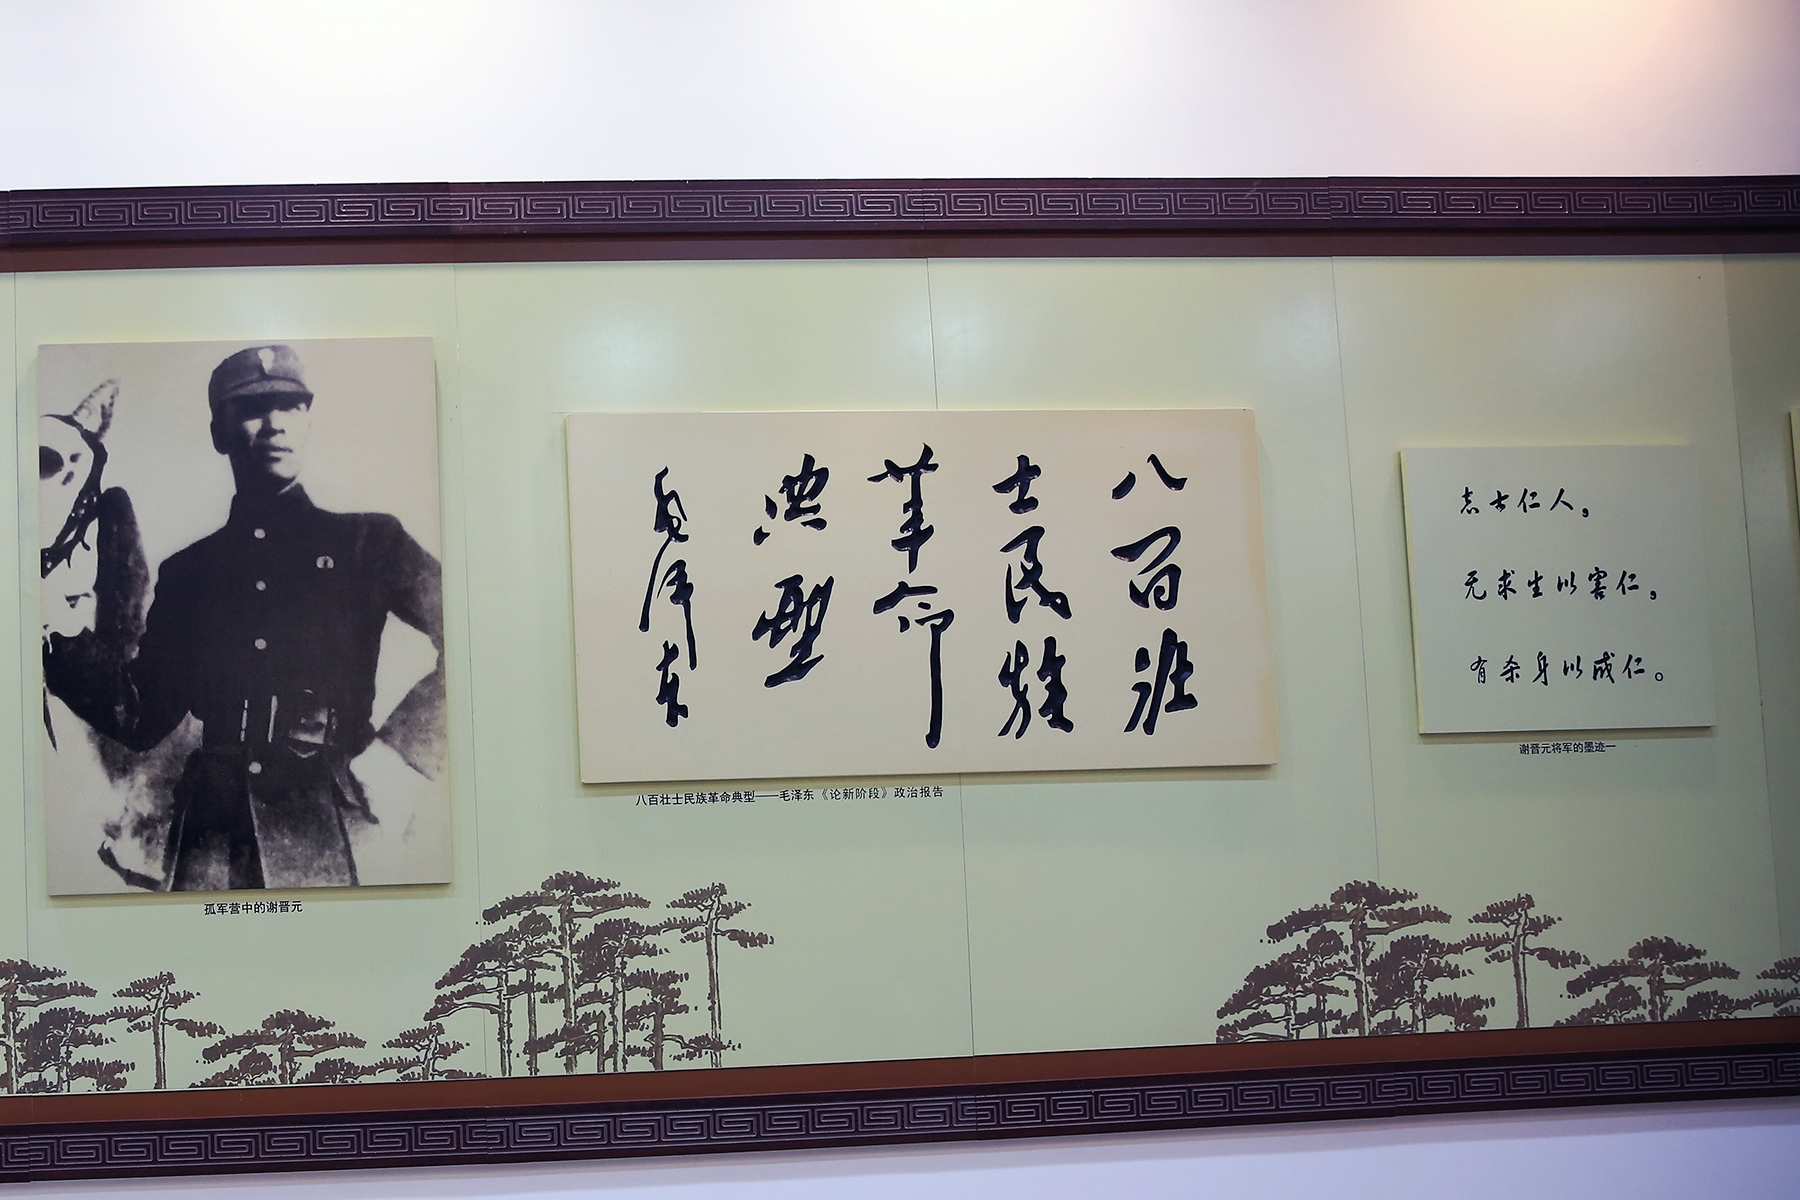 孤军营中的谢晋元
八百壮
士民族
革命
典型
毛泽东
八百壮士民族革命典型——毛泽东《论新阶段》政治报告
志士仁人，
无求生以害仁，
有杀身以成仁。
谢晋元将军的墨迹一